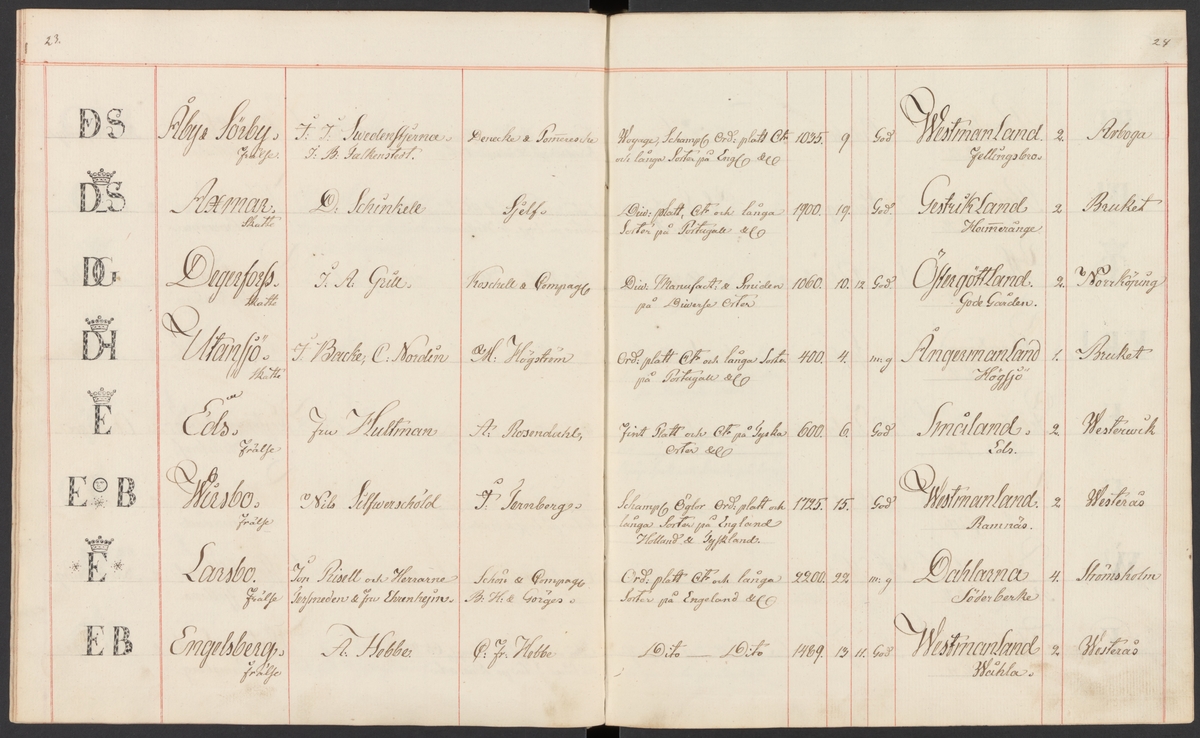 23.
24
DS Åby & Sörby. J. J. Swedenstjerna. Denecke & Pommeresche Woyage, Schampl Ord: platt Ct: 1035. 9 God Westmanland. 2. Arboga
Frälse J. B. Falkenstedt. och långa Sorter på Engl &C Fellingsbro.
DS Axmar. D. Schinkell Sjelf. Div: platt, Ct: och långa 1900. 19. God. Gestrikland 2 Bruket
Skatte Sorter på Portugall &C Hammerånge
DG Degerforss. J. A. Grill Koschell & Compagl Div. Manufact: & Smiden 1060. 10. 12 God Östergöttland. 2. Norrköping
Skatt på Diverse Orter Gode Gården.
DH Utansjö. J Backe, C: Nordin & M: Högström Ord: platt Ct: och långa Sorter 400. 4. m: g Ångermanland 1. Bruket
Skatte på Portugall &C Högsjö
E Eds. Fru Hultman A. Rosendahl, Fint Platt och Ct: på Tyska 600. 6. God Småland. 2. Westerwik
Frälse Orter &C Eds.
E B Wirsbo. Nils Silfwerschöld P. Ternberg. Schampl Öglor Ord: platt och 1725. 15. God Westmanland. 2 Westerås
Frälse långa Sorter på England Ramnäs.
Holland & Tyskland.
E Larsbo. Jon Risell och Herrarne Schön & Compagl Ord: platt Ct: och långa 2200. 22 m: g Dahlarna 4. Strömsholm
Frälse Tersmeden & Fru Ehrenhejm. B: H: & Görges. Sorter på Engeland &C Söderberke
EB Engelsberg. A. Hebbe. C: Fr. Hebbe Dito Dito 1489. 13 11. God Westmanland 2 Westerås
Frälse Wåhla.